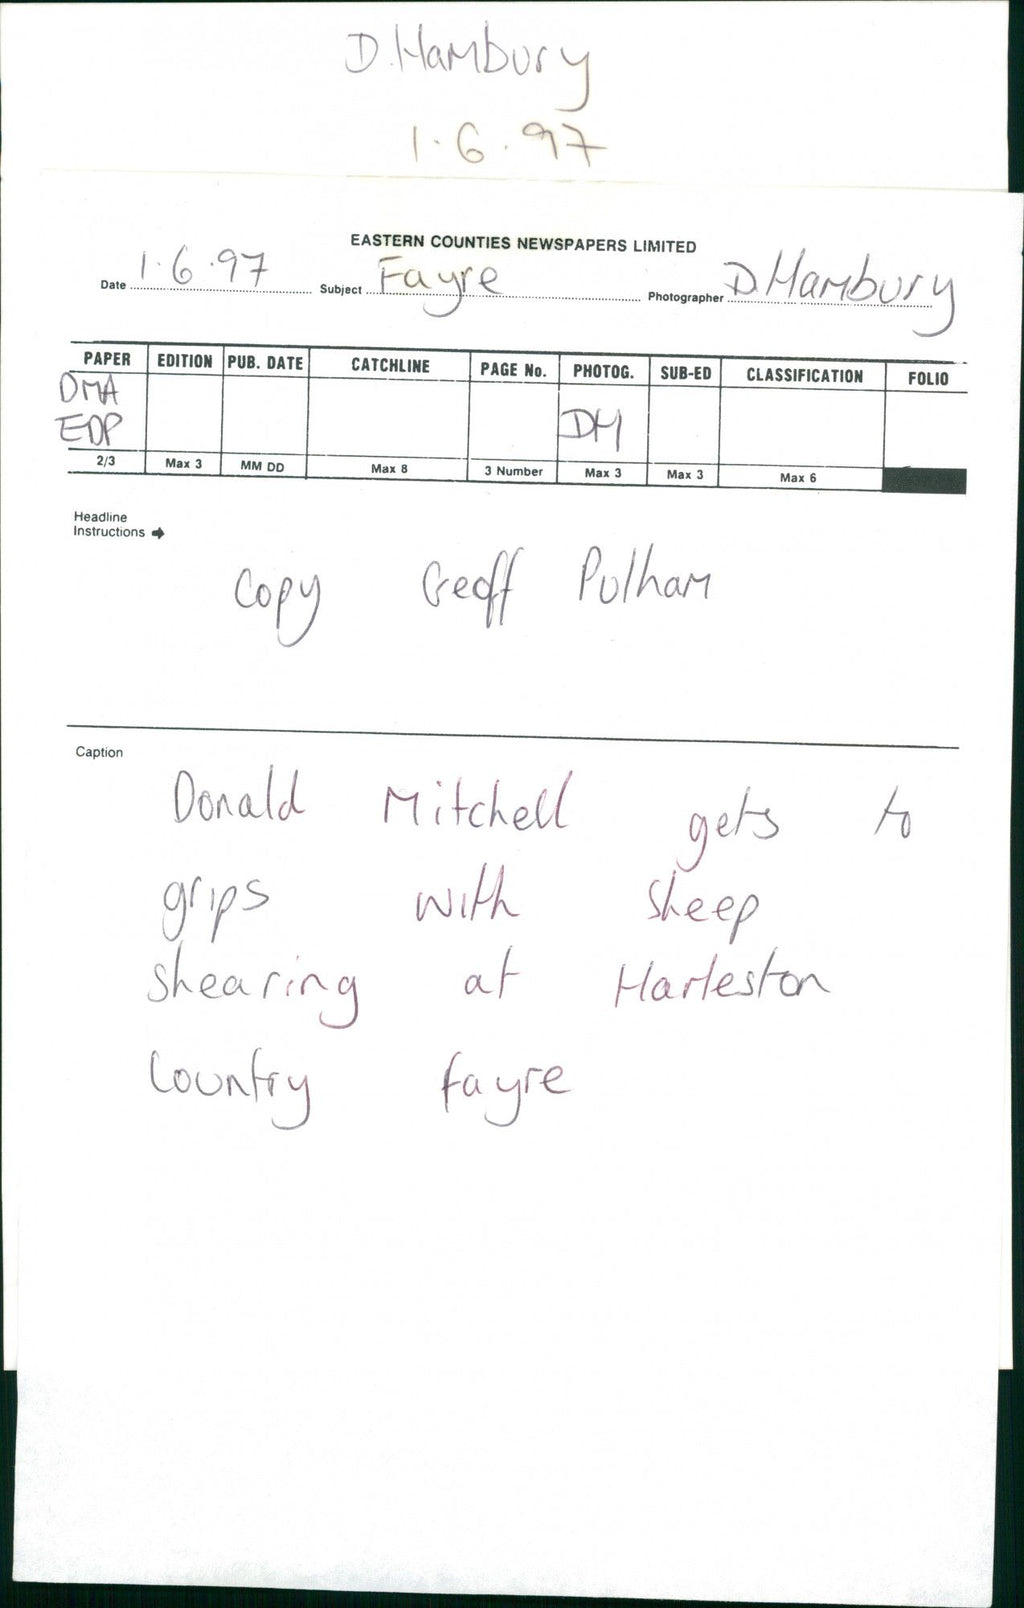 D.Hambury
1.6.97
EASTERN COUNTIES NEWSPAPERS LIMITED
Date 1.6.97 Subject Fayre Photographer D.Hambury
PAPER EDITION PUB. DATE CATCHLINE PAGE No. PHOTOG. SUB-ED CLASSIFICATION FOLIO
DMA
EDP DH
2/3 Max 3 MM DD Max 8 3 Number Max 3 Max 3 Max 6
Headline
Instructions ➡
Copy Geoff Pulham
Caption
Donald Mitchell gets to
grips with sheep
shearing at Harleston
Country fayre